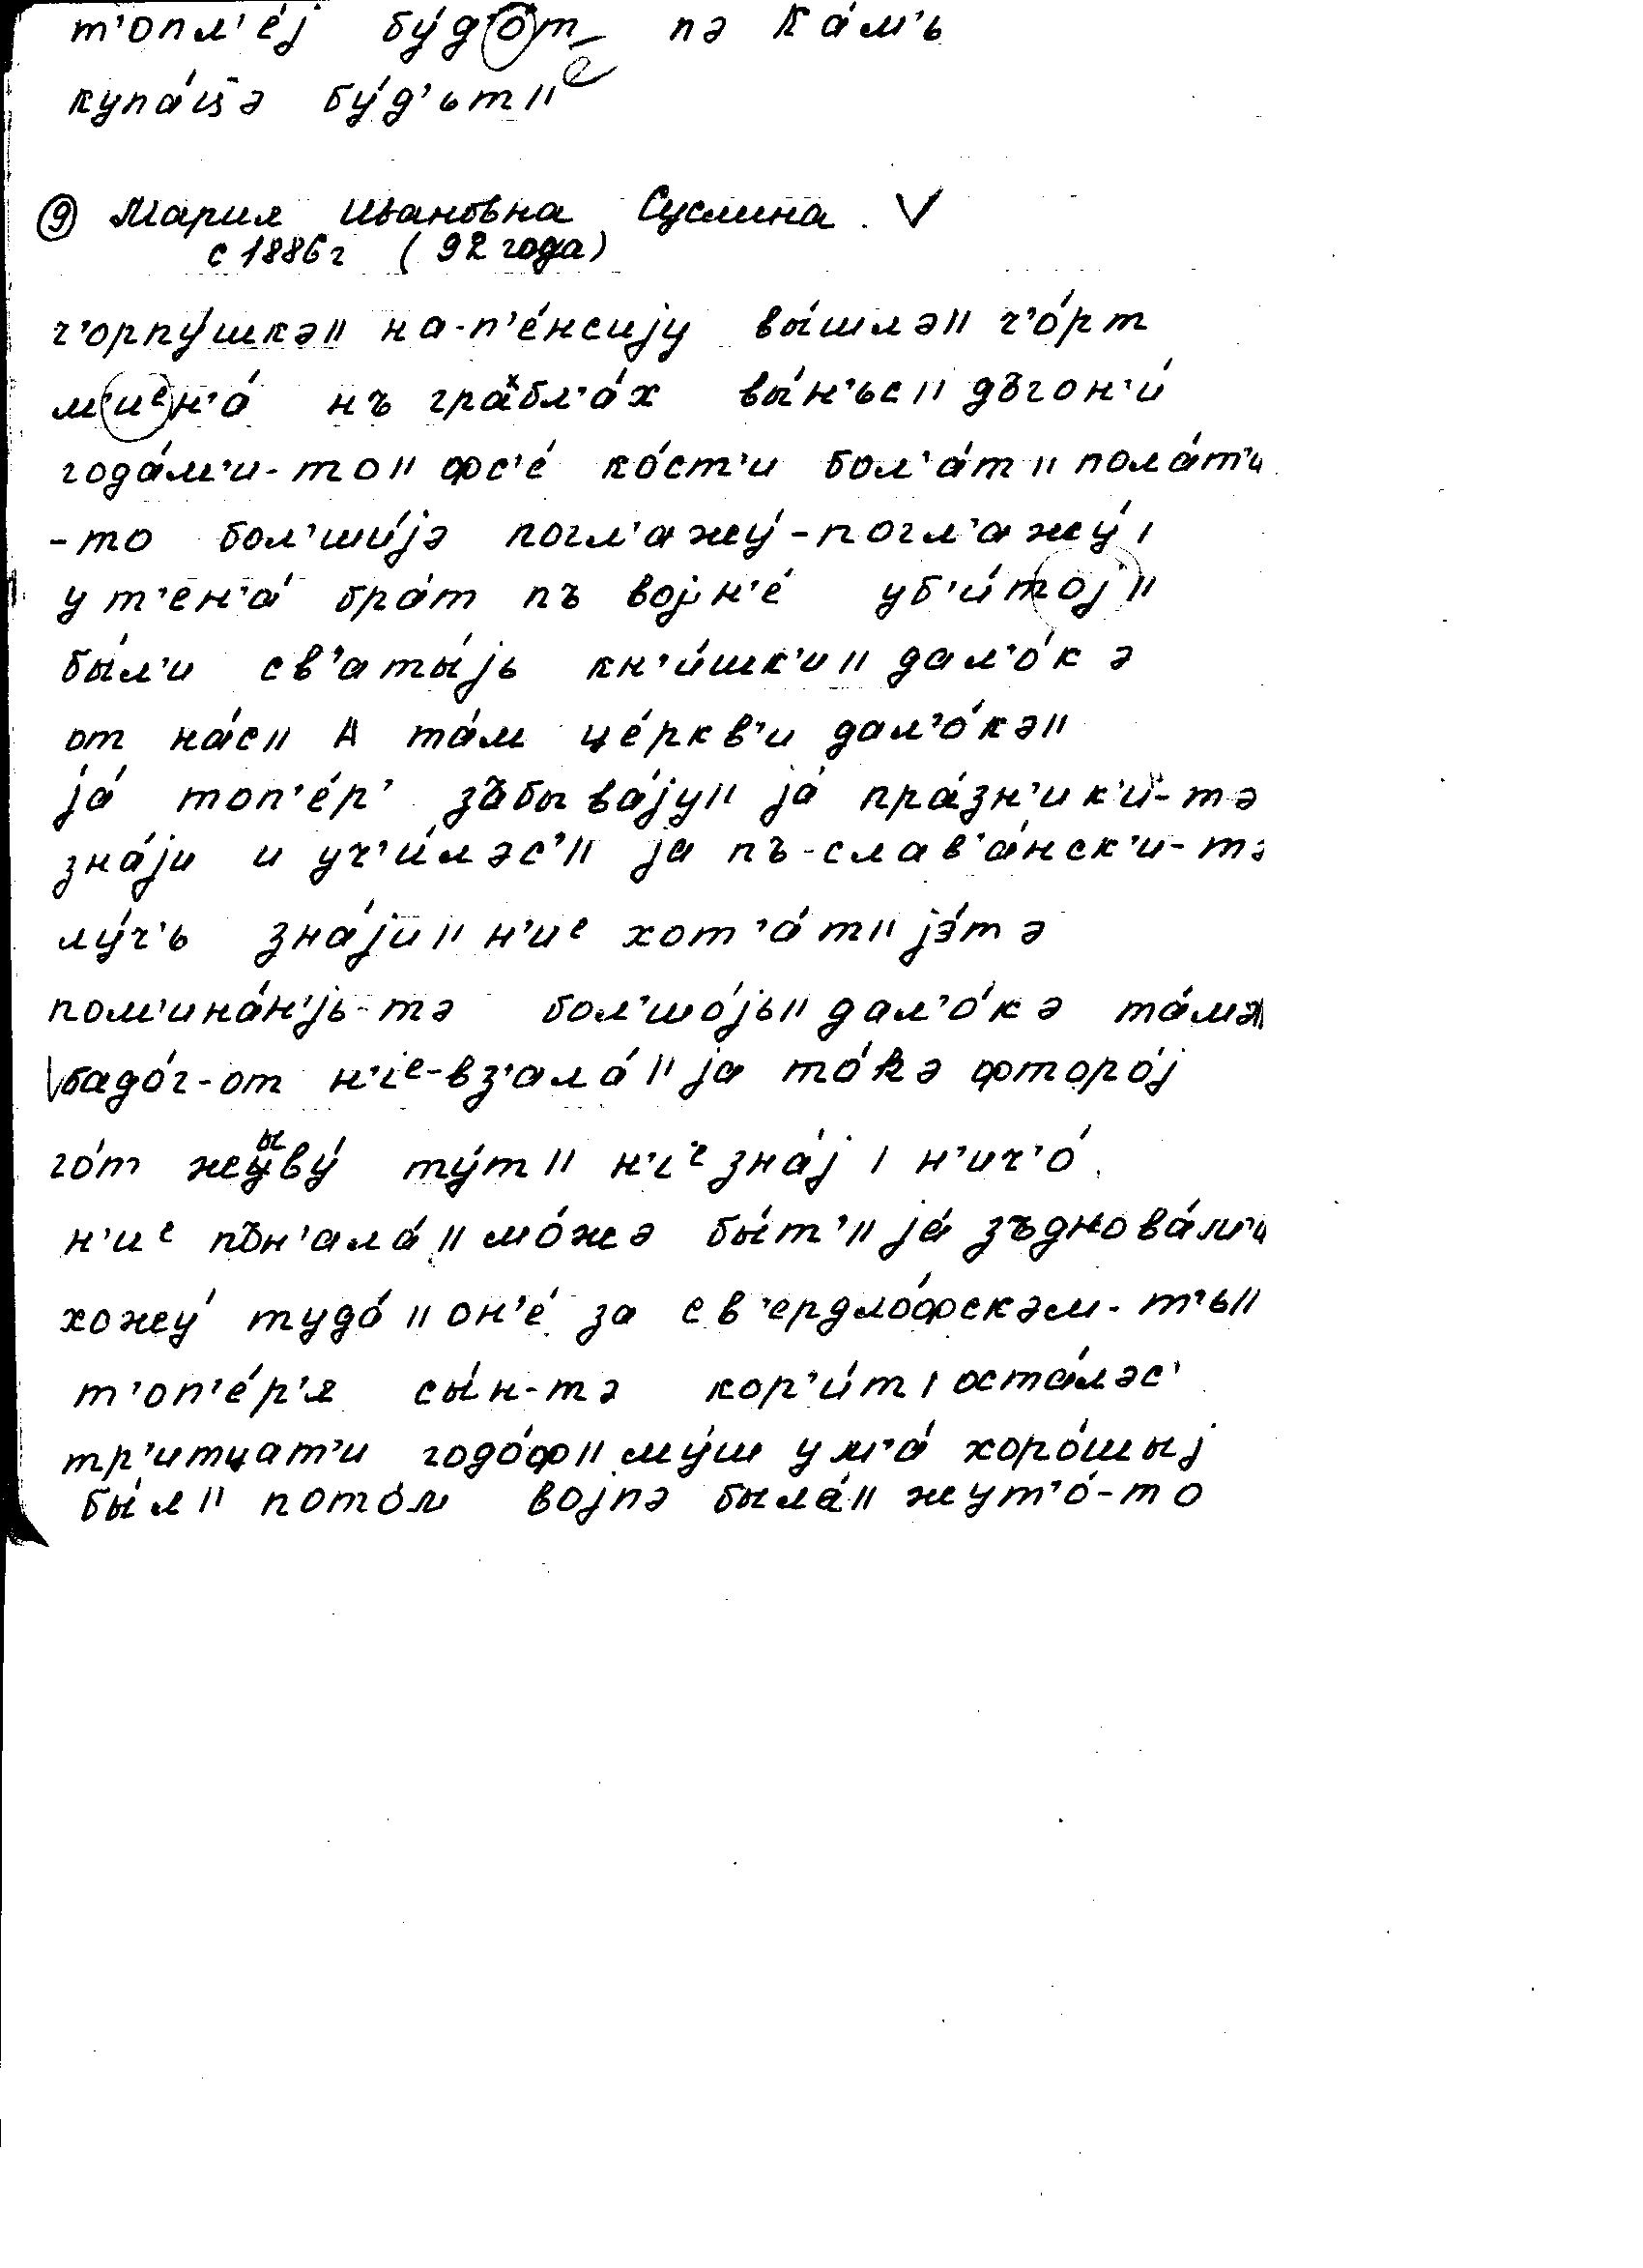 т'опл'е́j бу́дот пә ка́м'ь
купа́ц̄ә бу́д'ьт||
⑨ Мария Ивановна Суслина. V
с 1886г (92 года)
ч'орпу́шкә|| на-п'е́нсиjу вы́шлә|| ч'о́рт
м'иᵉн'а́ нъ грабл'а́х вы́н'ьс|| дъгон'и́
года́м'и-то|| фс'е́ ко́ст'и бол'а́т|| пола́т'и
-то бол'ши́jә погл'ажу́-погл'ажу́|
у т'ен'а́ бра́т пъ воjн'е́ уб'и́тоj||
бы́л'и св'аты́jь кн'и́шк'и|| дал'о́кә
от на́с|| А та́м це́ркв'и дал'о́кә||
jа́ топ'е́р' зъбыва́jу|| jа́ пра́зн'ик'и-тә
зна́jу и уч'и́ләс'|| jа пъ-слав'а́нск'и-тә
лу́ч'ь зна́jу|| н'иᵉ хот'а́т|| jэ́тә
пом'ина́н'jь-тә бол'шо́jь|| дал'о́кә та́мә||
бадо́г-от н'iᵉ-вз'ала́|| jа то́кә фторо́j
го́т жыву́ ту́т|| н'iᵉ зна́j| н'ич'о́
н'иᵉ пън'ала́|| мо́жә бы́т'|| jа́ зъднова́м'и
хожу́ тудо́|| он'е́ за св'ердло́фскәм-т'ь||
т'оп'е́р'я сы́н-тә кор'и́т| оста́ләс'
тр'итцат'и годо́ф|| му́ш у м'а́ хоро́шыj
бы́л|| пото́м воjпә была́|| жут'о́-то